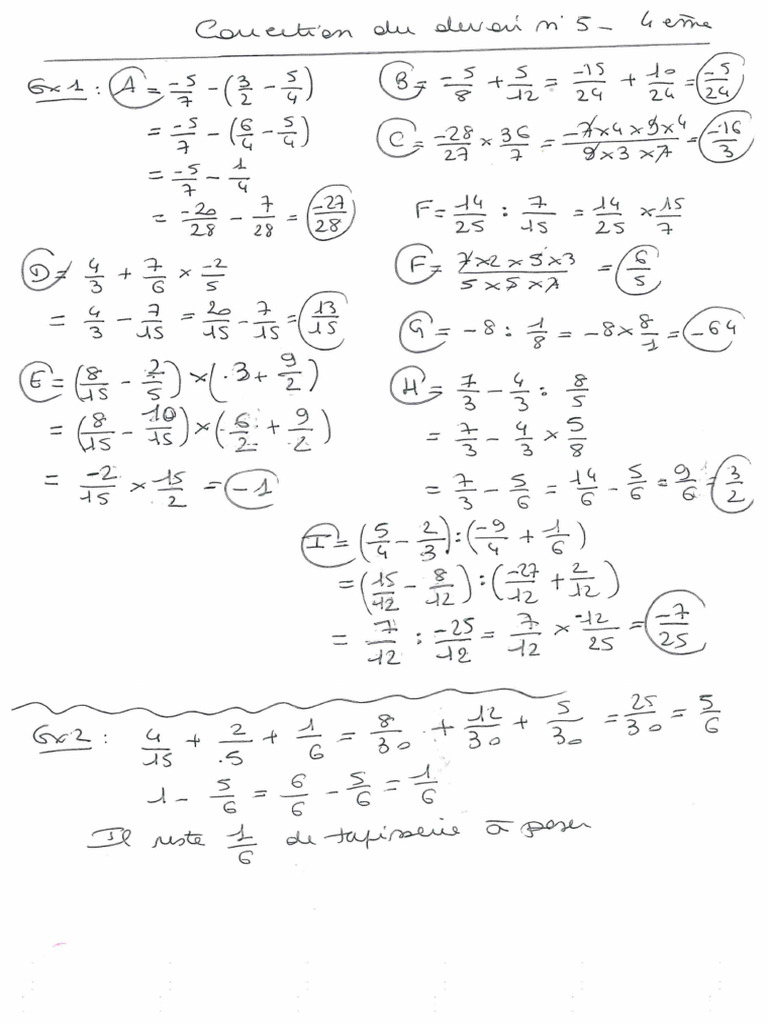 Correction du devoir n°5 - 4ème
Ex1 : A = -5/7 - (3/2 - 5/4)
= -5/7 - (6/4 - 5/4)
= -5/7 - 1/4
= -20/28 - 7/28 = -27/28
B = -5/8 + 5/12 = -15/24 + 10/24 = -5/24
C = -28/27 × 36/7 = -7×4×9×4/9×3×7 = -16/3
D = 4/3 + 7/6 × -2/5
= 4/3 - 7/15 = 20/15 - 7/15 = 13/15
F = 14/25 : 7/15 = 14/25 × 15/7
F = 7×2×5×3/5×5×7 = 6/5
G = -8 : 1/8 = -8 × 8/1 = -64
E = (8/15 - 2/5) × (3 + 9/2)
= (8/15 - 10/15) × (6/2 + 9/2)
= -2/15 × 15/2 = -1
H = 7/3 - 4/3 : 8/5
= 7/3 - 4/3 × 5/8
= 7/3 - 5/6 = 14/6 - 5/6 = 9/6 = 3/2
I = (5/4 - 2/3) : (-9/4 + 1/6)
= (15/12 - 8/12) : (-27/12 + 2/12)
= 7/12 : -25/12 = 7/12 × -12/25 = -7/25
Ex2 : 4/15 + 2/5 + 1/6 = 8/30 + 12/30 + 5/30 = 25/30 = 5/6
1 - 5/6 = 6/6 - 5/6 = 1/6
Il reste 1/6 de tapisserie à poser